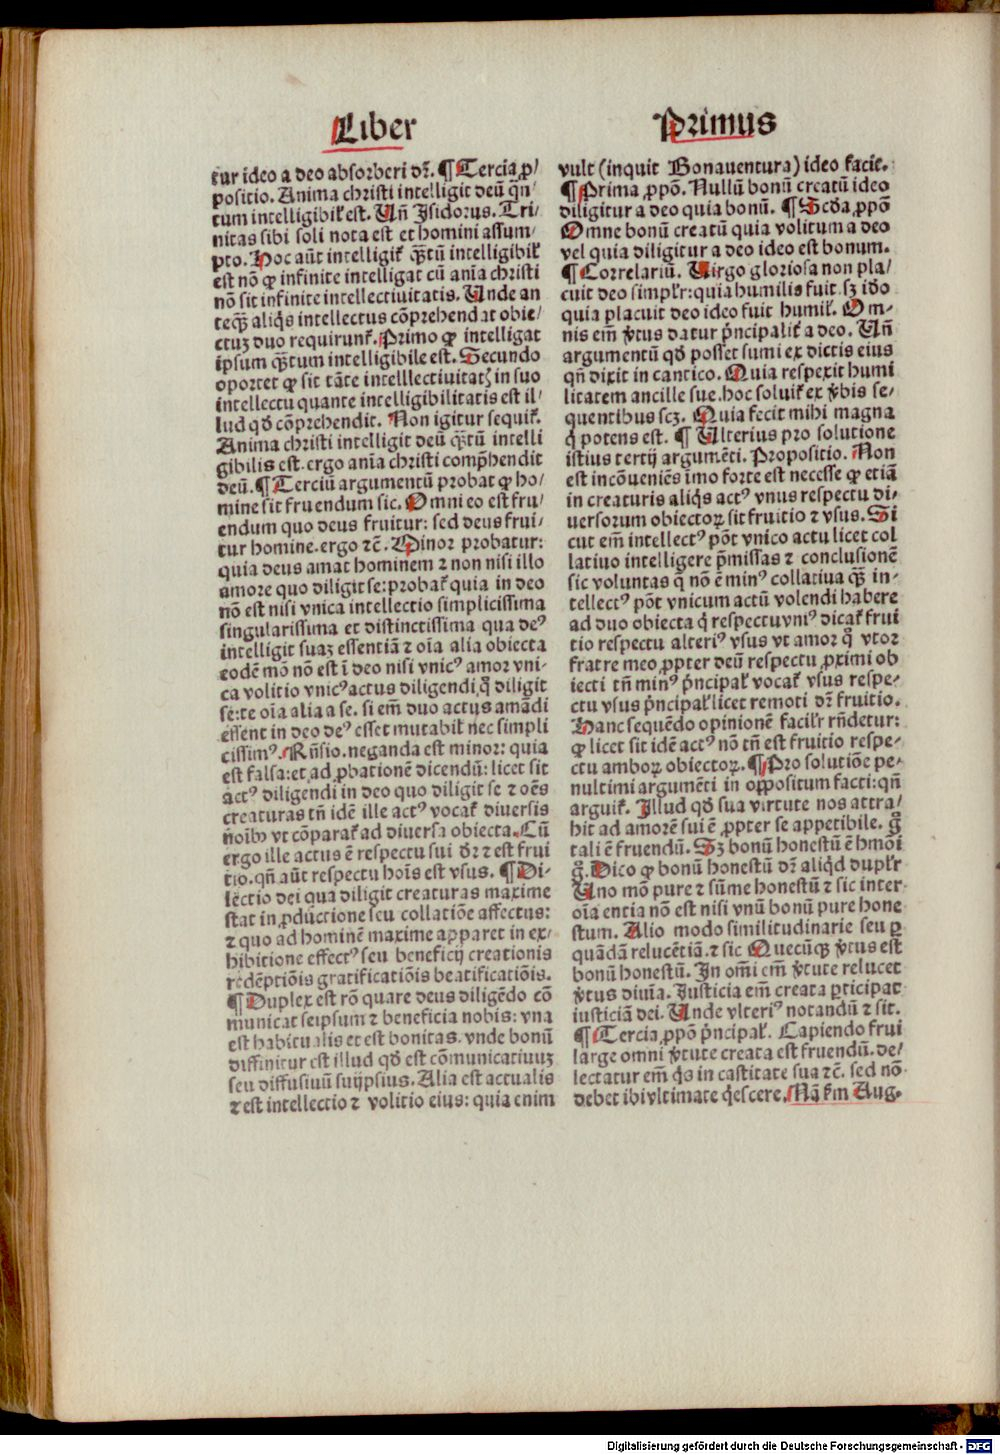 Liber
Primus
tur ideo a deo absorberi dr̄. ¶ Tercia ꝓ/
positio. Anima christi intelligit deū qn̄/
tum intelligibile est. Vn̄ Isidorus. Tri/
nitas sibi soli nota est et homini assum/
pto. Hoc aūt intelligit̄ qꝫtū intelligibił
est nō ꝙ infinite intelligat cū aīa christi
nō sit infinite intellectiuitatis. Unde an
teqꝫ aliq̇s intellectus cōprehendat obie/
ctuꝫ duo requirunt̄. Primo ꝙ intelligat
ipsum qꝫtum intelligibile est. Secundo
oportet ꝙ sit tāte intelllectiuitatꝭ in suo
intellectu quante intelligibilitatis est il/
lud qđ cōprehendit. Non igitur sequit̄.
Anima christi intelligit deū qꝫtū intelli
gibilis est. ergo aīa christi comp̄hendit
deū. ¶ Terciū argumentū probat ꝙ ho/
mine sit fruendum sic. Omni eo est fru/
endum quo deus fruitur: sed deus frui/
tur homine. ergo ⁊c̄. Minor probatur:
quia deus amat hominem ⁊ non nisi illo
amore quo diligit se: probat̄ quia in deo
nō est nisi vnica intellectio simplicissima
singularissima et distinctissima qua deꝰ
intelligit suaꝫ essentiā ⁊ oīa alia obiecta
eodē mō nō est ī deo nisi vnicꝰ amor vni-
ca volitio vnicꝰ actus diligendi, q̊ diligit
se: te oīa alia a se. si em̄ duo actus amādi
essent in deo deꝰ esset mutabił nec simpli
cissimꝰ. Rn̄sio. neganda est minor: quia
est falsa: et ad ꝓbationē dicendū: licet sit
actꝰ diligendi in deo quo diligit se ⁊ oēs
creaturas tn̄ idē ille actꝰ vocat̄ diuersis
noīb⁹ vt cōparat̄ ad diuersa obiecta. Cū
ergo ille actus ē respectu sui dr̄ ⁊ est frui
tio. qn̄ aūt respectu hoīs est vsus. ¶ Di-
lectio dei qua diligit creaturas maxime
stat in ꝓductione seu collatiōe affectus:
⁊ quo ad hominē maxime apparet in ex/
hibitione effectꝰ seu beneficij creationis
redēptiōis gratificatiōis beatificatiōis.
¶ Duplex est rō quare deus diligēdo cō
municat seipsum ⁊ beneficia nobis: vna
est habitualis et est bonitas. vnde bonū
diffinitur est illud qđ est cōmunicatiuuꝫ
seu diffusiuū suijpsius. Alia est actualis
⁊ est intellectio ⁊ volitio eius: quia enim
vult (inquit Bonauentura) ideo facit.
¶ Prima ꝓpō. Nullū bonū creatū ideo
diligitur a deo quia bonū. ¶ Scđa ꝓpō
Omne bonū creatū quia volitum a deo
vel quia diligitur a deo ideo est bonum.
¶ Correlariū. Virgo gloriosa non pla/
cuit deo simpłr: quia humilis fuit. sꝫ iđo
quia placuit deo ideo fuit humił. Om-
nis em̄ v̓tus datur p̓ncipalit̄ a deo. Vn̄
argumentū qđ posset sumi ex dictis eius
qn̄ dixit in cantico. Quia respexit humi
litatem ancille sue. hoc soluit̄ ex v̓bis se/
quentibus scꝫ. Quia fecit mihi magna
q̇ potens est. ¶ Ulterius pro solutione
istius tertij argumēti. Propositio. Non
est incōueniēs imo forte est necesse ꝙ etiā
in creaturis aliq̇s actꝰ vnus respectu di/
uersorum obiectoꝝ sit fruitio ⁊ vsus. Si
cut em̄ intellectꝰ pōt vnico actu licet col
latiuo intelligere p̄missas ⁊ conclusionē
sic voluntas q̄ nō ē minꝰ collatiua qꝫ in-
tellectꝰ pōt vnicum actū volendi habere
ad duo obiecta q̇ respectu vniꝰ dicat̄ frui
tio respectu alteriꝰ vsus vt amor q̊ vtor
fratre meo ꝓpter deū respectu ꝓximi ob
iecti tn̄ minꝰ p̓ncipał vocat̄ vsus respe-
ctu vsus p̓ncipał licet remoti dr̄ fruitio.
Hanc sequēdo opinionē facilr̄ rn̄detur:
ꝙ licet sit idē actꝰ nō tn̄ est fruitio respe-
ctu amboꝝ obiectoꝝ. ¶ Pro solutiōe pe-
nultimi argumēti in oppositum facti: qn̄
arguit̄. Illud qđ sua virtute nos attra/
hit ad amorē sui ē ꝓpter se appetibile. g̊
tali ē fruendū. Sꝫ bonū honestū ē hmōi
g̊. Dico ꝙ bonū honestū dr̄ aliq̇d dupłr
Uno mō pure ⁊ sūme honestū ⁊ sic inter
oīa entia nō est nisi vnū bonū pure hone
stum. Alio modo similitudinarie seu ꝑ
quādā relucētiā. ⁊ sic Quecūqꝫ v̓tus est
bonū honestū. In om̄i em̄ v̓tute relucet
v̓tus diuīa. Iusticia em̄ creata ꝑticipat
iusticiā dei. Unde vlteriꝰ notandū ⁊ sit.
¶ Tercia ꝓpō p̓ncipał. Capiendo frui
large omni v̓tute creata est fruendū. de/
lectatur em̄ q̇s in castitate sua ⁊c̄. sed nō
debet ibi vltimate q̇escere. Nā s̄m Aug.
Digitalisierung gefördert durch die Deutsche Forschungsgemeinschaft - DFG